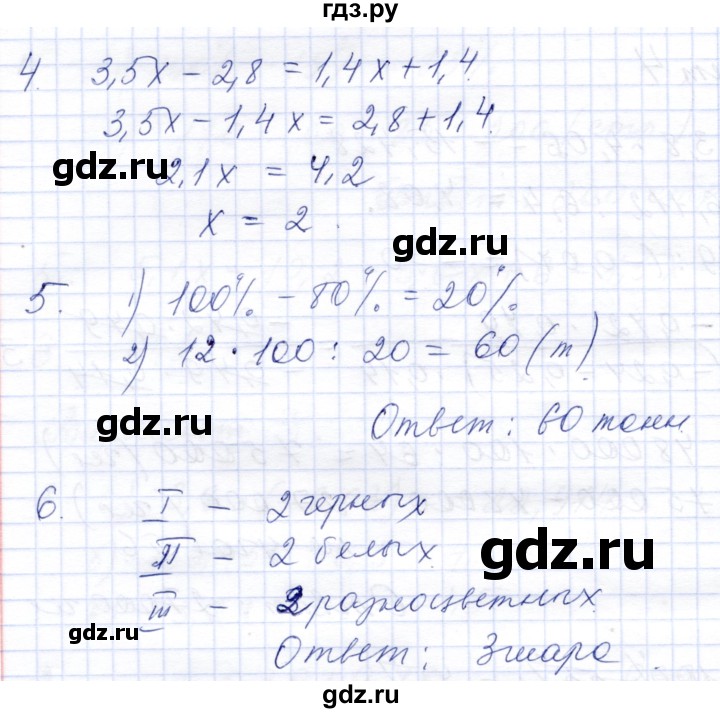 гдз.ру
4. 3,5x − 2,8 = 1,4x + 1,4.
3,5x − 1,4x = 2,8 + 1,4.
gdz.ru
2,1x = 4,2
x = 2.
gdz.ru
5. 1) 100% − 80% = 20%
2) 12 · 100 : 20 = 60 (т)
gdz.ru
Ответ: 60 тонн
6. I – 2 черных
II – 2 белых
gdz.ru
III – 2 разноцветных
gdz.ru
Ответ: 3 шара.
gdz.ru